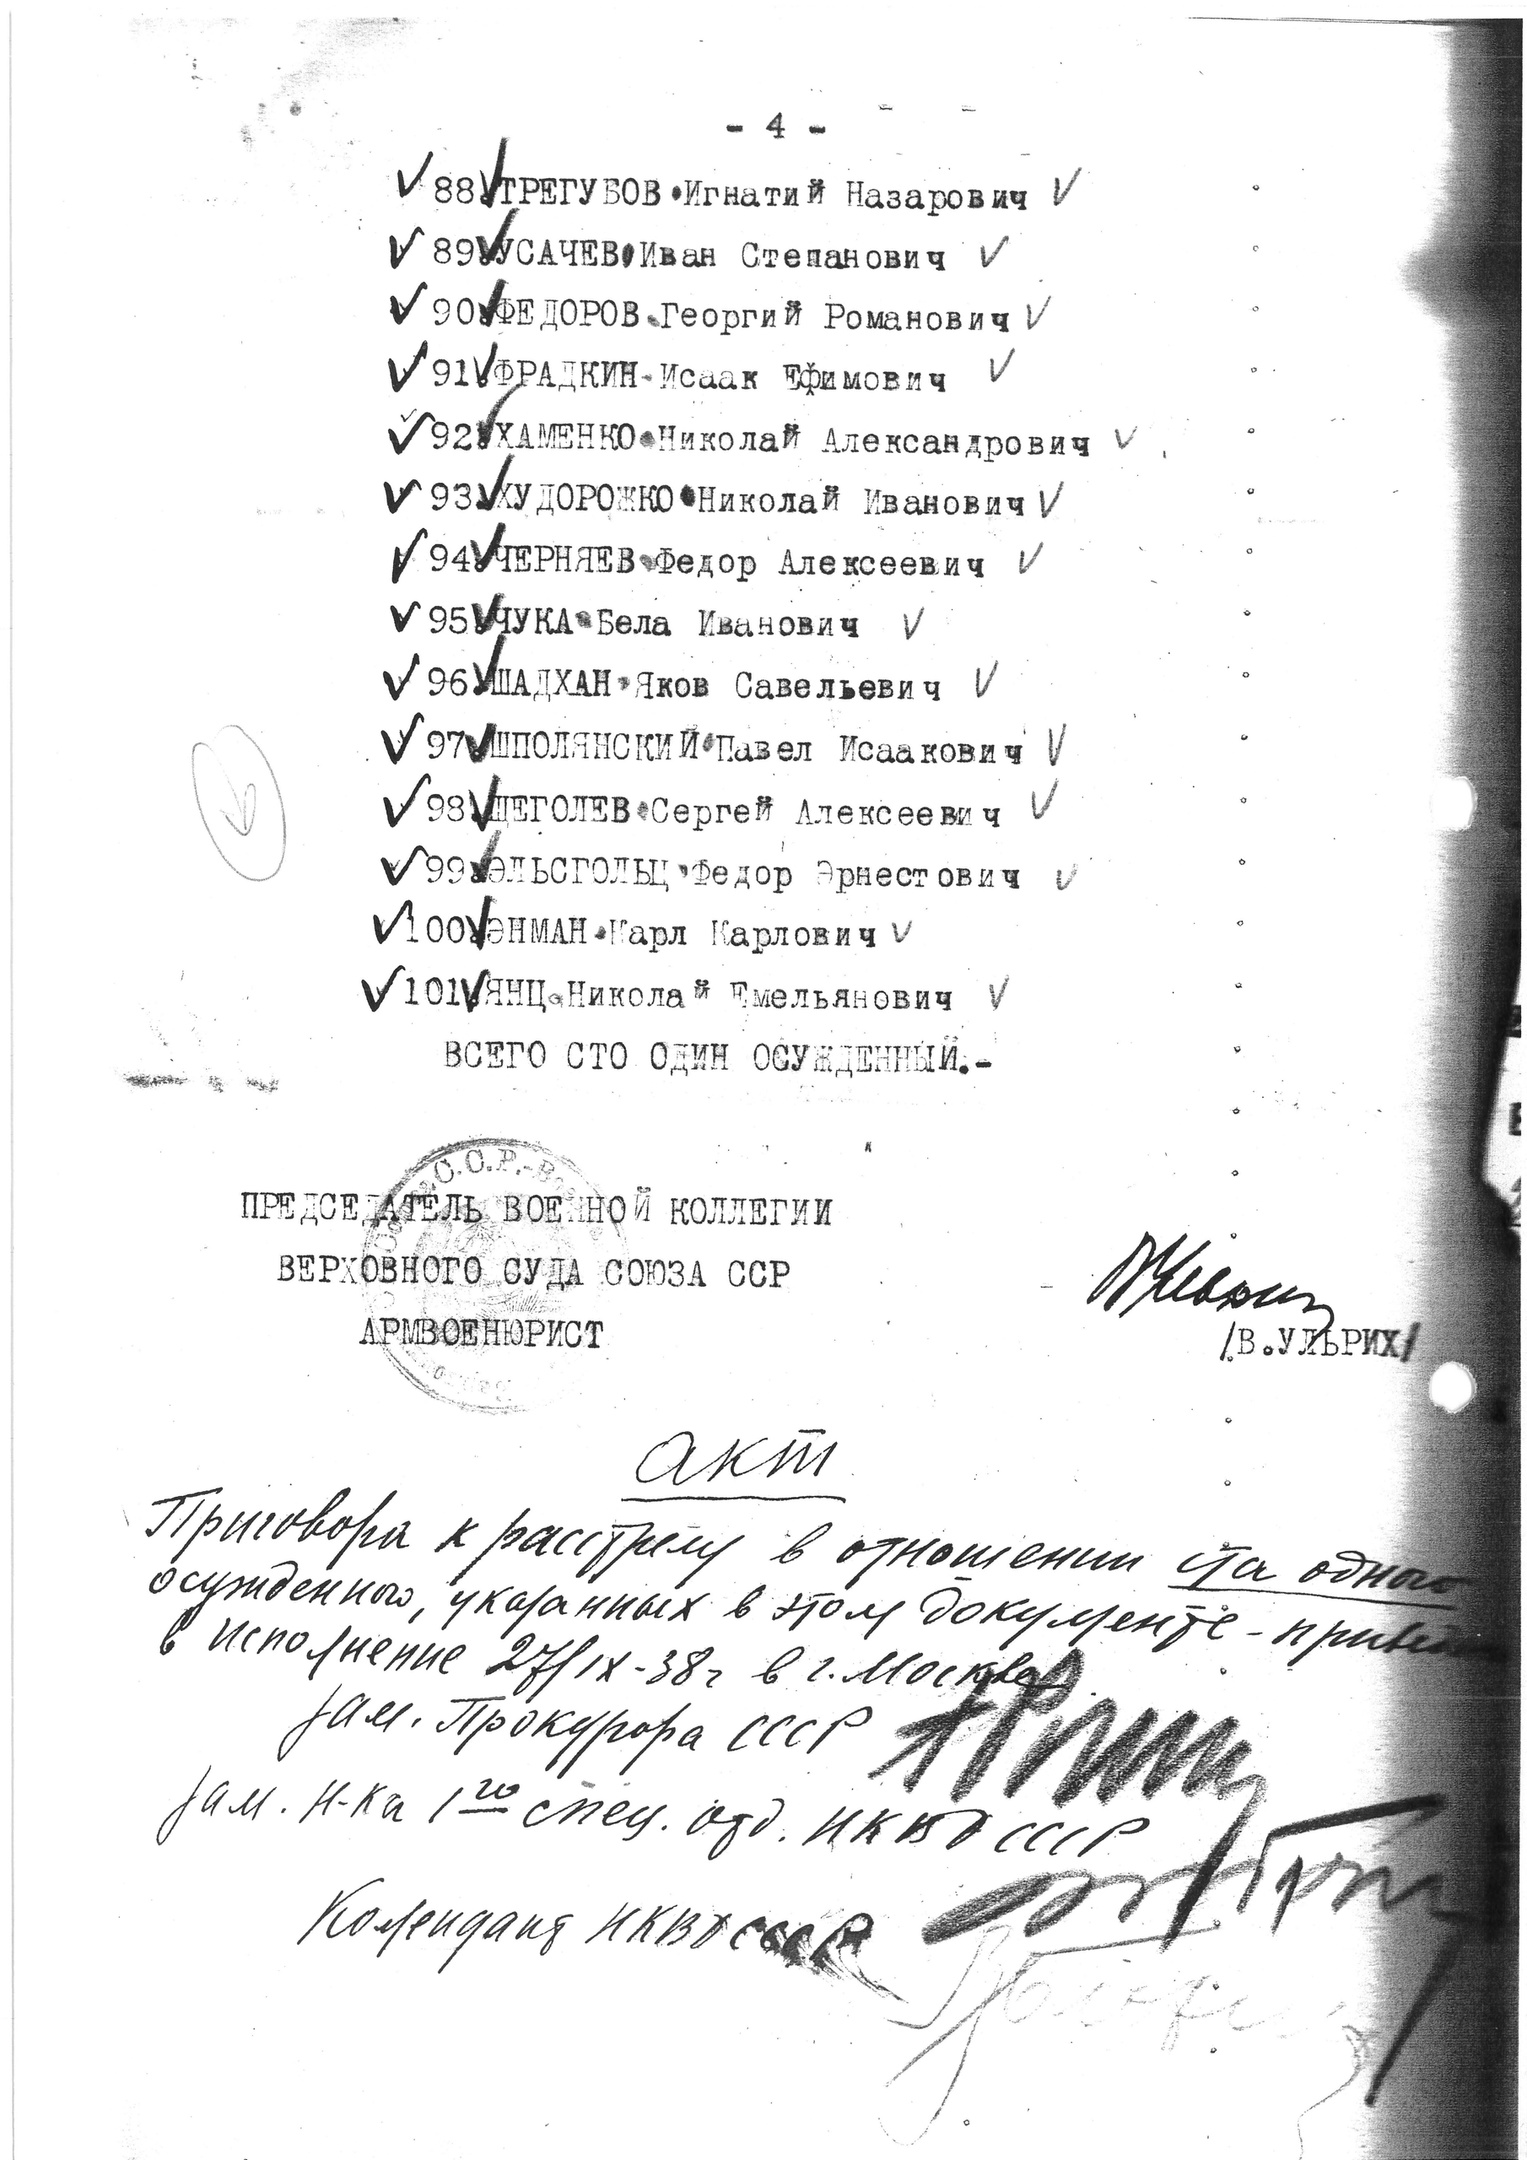 - 4 -
88. ТРЕГУБОВ Игнатий Назарович
89. УСАЧЕВ Иван Степанович
90. ФЕДОРОВ Георгий Романович
91. ФРАДКИН Исаак Ефимович
92. ХАМЕНКО Николай Александрович
93. ХУДОРОЖКО Николай Иванович
94. ЧЕРНЯЕВ Федор Алексеевич
95. ЧУКА Бела Иванович
96. ШАДХАН Яков Савельевич
97. ШПОЛЯНСКИЙ Павел Исаакович
98. ЩЕГОЛЕВ Сергей Алексеевич
99. ЭЛЬСГОЛЬЦ Федор Эрнестович
100. ЭНМАН Карл Карлович
101. ЯНЦ Николай Емельянович
ВСЕГО СТО ОДИН ОСУЖДЕННЫЙ.-
ПРЕДСЕДАТЕЛЬ ВОЕННОЙ КОЛЛЕГИИ
ВЕРХОВНОГО СУДА СОЮЗА ССР
АРМВОЕНЮРИСТ
/В.УЛЬРИХ/
Акт
Приговора к расстрелу в отношении ста одного
осужденного, указанных в этом документе - приведены
в исполнение 27/IX-38г в г. Москве.
Зам. Прокурора СССР
Зам. Н-ка 1го спец. отд. НКВД СССР
Комендант НКВД СССР